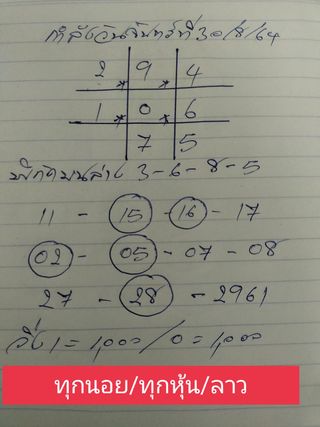 กำลังวันจันทร์ที่ 30/8/64
2 9 4
1 0 6
7 5
3-6-8-5
11 - 15 - 16 - 17
02 - 05 - 07 - 08
27 - 28 - 2961
วิ่ง 1 = 1,000 / 0 = 1,000
ทุกนอย/ทุกหุ้น/ลาว